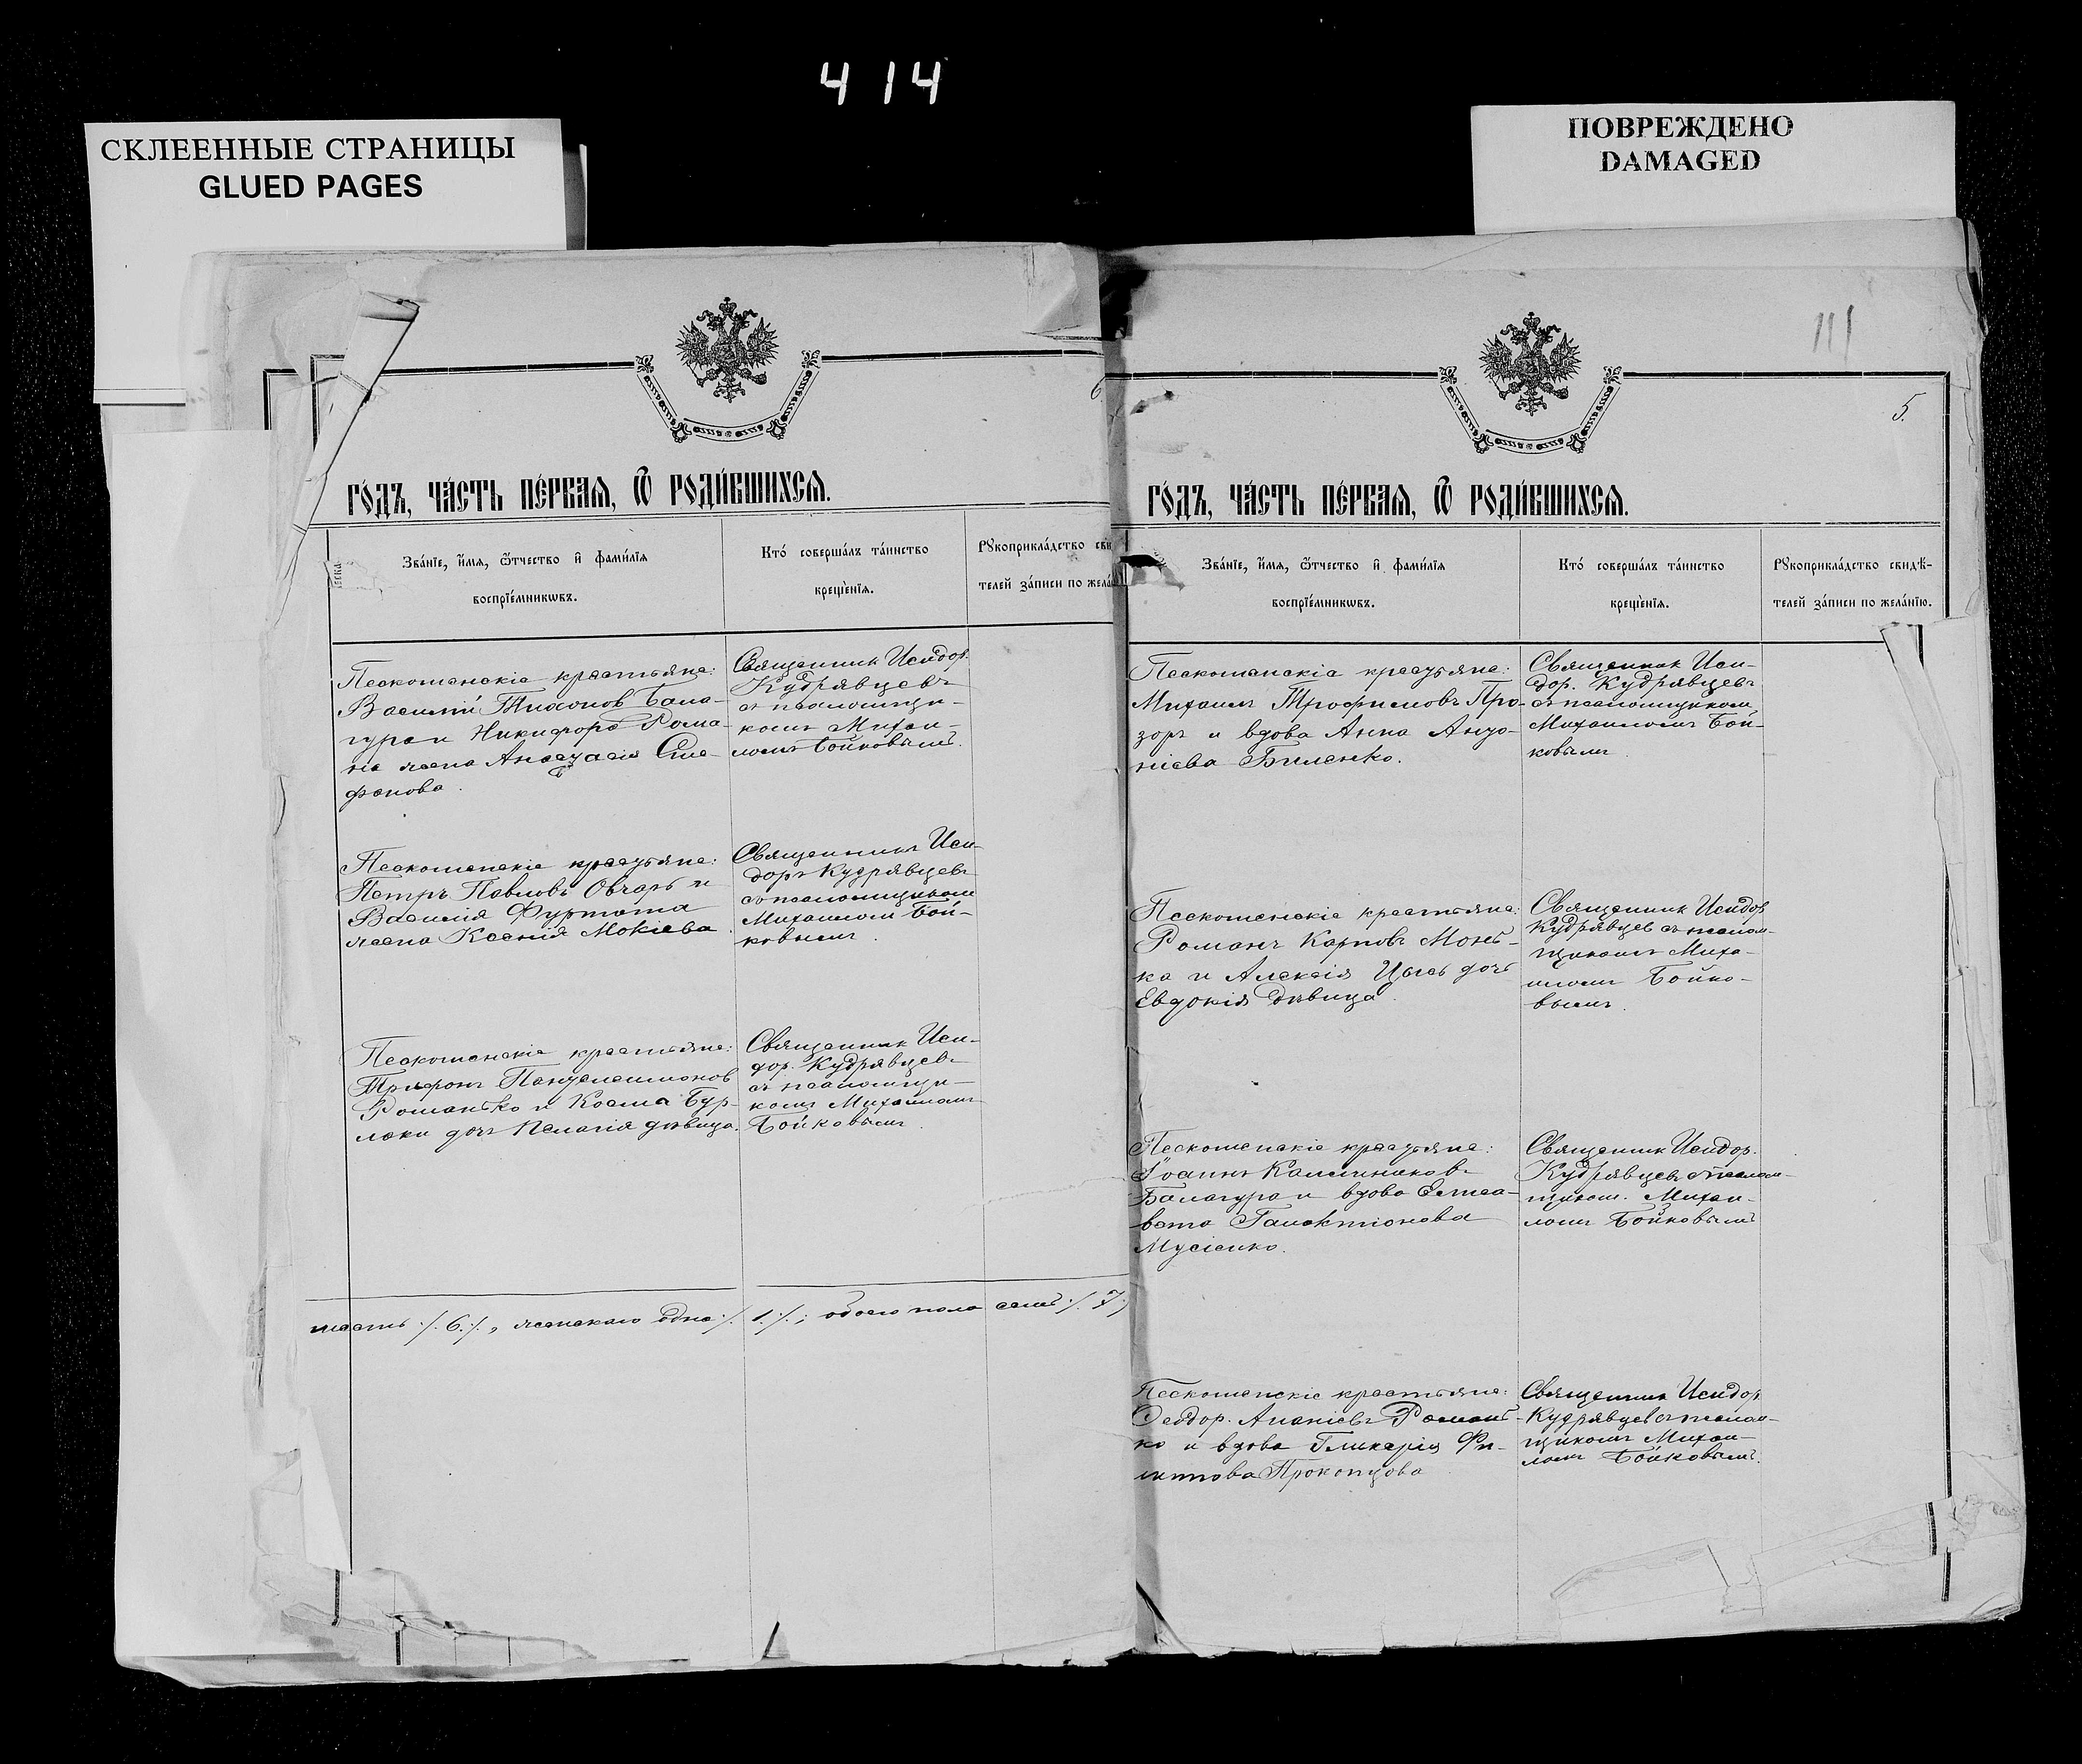 414
СКЛЕЕННЫЕ СТРАНИЦЫ
GLUED PAGES
ПОВРЕЖДЕНО
DAMAGED
111
6
5.
го́дъ, ча́сть пе́рваѧ, ѿ роди́вшихсѧ.
Зва́нїе, и҆́мѧ, ѻ҆́тчество и҆ фами́лїѧ
воспрїе́мникѡвъ.
Кто̀ соверша́лъ та́инство
креще́нїѧ.
Рꙋкоприкла́дство сви
телей за́писи по жела
Пескошенскіе крестьяне:
Василій Тихонов Бала-
гура и Никифора Рома-
на жена Анастасія Сте-
фанова.
Священник Исидор.
Кудрявцевъ
съ псаломщи-
комъ Михаи-
ломъ Бойковымъ.
Пескошенскіе крестьяне:
Петръ Павловъ Овчаръ и
Василія Фуртата
жена Ксенія Мокіева.
Священникъ Иси-
доръ Кудрявцевъ
съ псаломщиком
Михаиломъ Бой-
ковымъ.
Пескошенскіе крестьяне:
Трифонъ Пантелеимонов
Романько и Косма Бур-
лаки дочь Пелагія дѣвица.
Священник Иси-
дор. Кудрявцевъ
съ псаломщи-
комъ Михаиломъ
Бойковымъ.
шесть ./. 6 ./. , женскаго одна ./. 1 ./. ; обоего пола семь ./. 7 ./
го́дъ, ча́сть пе́рваѧ, ѿ роди́вшихсѧ.
Зва́нїе, и҆́мѧ, ѻ҆́тчество и҆ фами́лїѧ
воспрїе́мникѡвъ.
Кто̀ соверша́лъ та́инство
креще́нїѧ.
Рꙋкоприкла́дство свидѣ-
телей за́писи по жела́нїю.
Пескошенскіе крестьяне:
Михаилъ Трофимовъ Про-
зоръ и вдова Анна Анто-
ніева Биленко.
Священник Иси-
дор. Кудрявцевъ
съ псаломщиком
Михаиломъ Бой-
ковымъ
Пескошенскіе крестьяне:
Романъ Карповъ Монь-
ка и Алексія Цысь дочь
Евдокія дѣвица.
Священник Исидор
Кудрявцев съ псалом-
щикомъ Миха-
иломъ Бойко-
вымъ.
Пескошенскіе крестьяне:
Іоаннъ Калиниковъ
Балагура и вдова Елиса-
вета Галактіонова
Мусіенко.
Священник Исидор.
Кудрявцевъ съ псалом-
щиком. Михаи-
ломъ Бойковымъ
Пескошенскіе крестьяне:
Ѳеодор. Ананіевъ Романь-
ко и вдова Гликерія Фи-
липпова Прокопцова
Священник Исидор
Кудрявцевъ съ псалом-
щикомъ Михаи-
ломъ Бойковымъ.